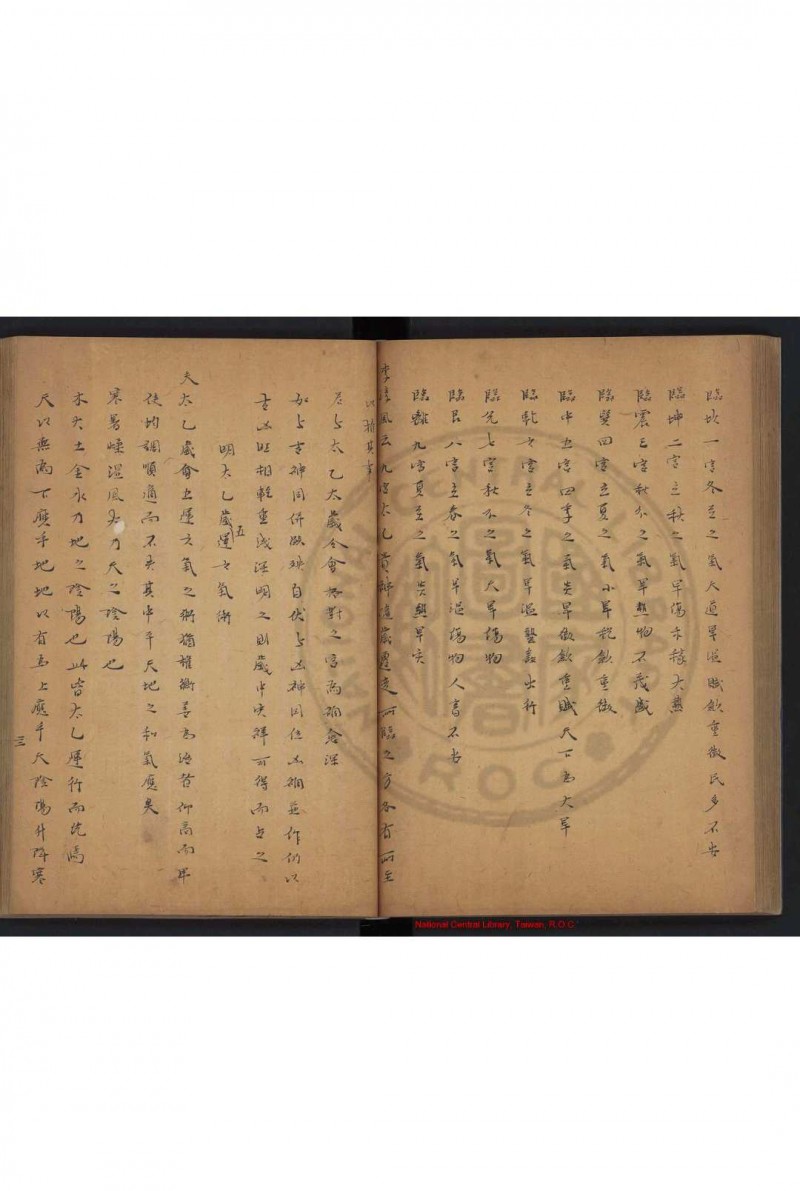 臨坎一宮冬至之氣大道旱澁賦斂重徵民多不安
臨坤二宮立秋之氣旱傷禾稼大熱
臨震三宮秋分之氣旱熱物不茂盛
臨巽四宮立夏之氣小旱稅斂重徵
臨中五宮四季之氣炎旱徵斂重賦天下為大旱
臨乾六宮立冬之氣旱澁蟄蟲出行
臨兌七宮秋分之氣大旱傷物
臨艮八宮立春之氣旱澁傷物人畜不安
臨離九宮夏至之氣炎熱旱災
李淳風云九宮太乙貴神隨歲遷逆所臨之方各有所主
以推其事
太乙太歲合會 對之宮為禍愈深
如與吉神同併 與凶神同位凶禍並作仍以
吉凶班相輕重淺深明之則歲中災祥可得而占之
明太乙歲五運六氣術
夫太乙歲會五運六氣之術猶權衡 高而卑
使均調順適而不失其中乎天地之和氣應矣
寒暑燥濕風火乃天之陰陽也
木火土金水乃地之陰陽也此皆太乙運行而
天以無為下應乎地地以有為上應乎天陰陽升降寒
三
National Central Library, Taiwan, R.O.C
NATIONAL CENTRAL LIBRARY
ROC